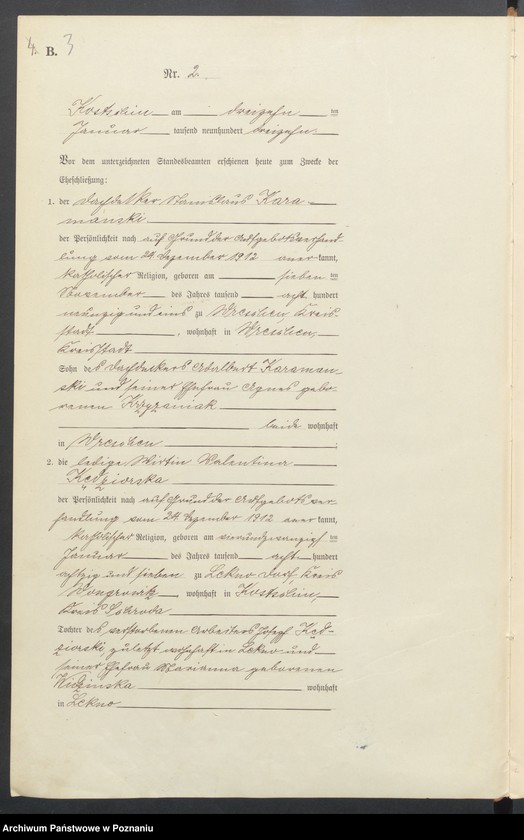 4. B. 3
Nr. 2
Kostschin am dreizehn ten
Januar tausend neunhundert dreizehn
Vor dem unterzeichneten Standesbeamten erschienen heute zum Zwecke der
Eheschließung:
1. der Dachdecker Stanislaus Kara-
manski
der Persönlichkeit nach auf Grund der Aufgebotsverhand-
lung vom 24. Dezember 1912 aner kannt,
katholischer Religion, geboren am sieben ten
November des Jahres tausend acht hundert
neunzig und eins zu Wreschen, Kreis-
stadt, wohnhaft in Wreschen,
Kreisstadt
Sohn des Dachdeckers Adalbert Karaman-
ski und seiner Ehefrau Agnes gebo-
renen Krzyzaniak
beide wohnhaft
in Wreschen
2. die ledige Wirtin Valentina
Kędziorska
der Persönlichkeit nach auf Grund der Aufgebotsver-
handlung vom 24. Dezember 1912 aner kannt,
katholischer Religion, geboren am ten
Januar des Jahres tausend acht hundert
achtzig und sieben zu Lekno Dorf, Kreis
Wongrowitz, wohnhaft in Kostschin,
Kreis Schroda
Tochter des verstorbenen Arbeiters Josef Kęd-
ziorski, zuletzt wohnhaft in Lekno und
seiner Ehefrau Marianna geborenen
wohnhaft
in Lekno
Archiwum Państwowe w Poznaniu